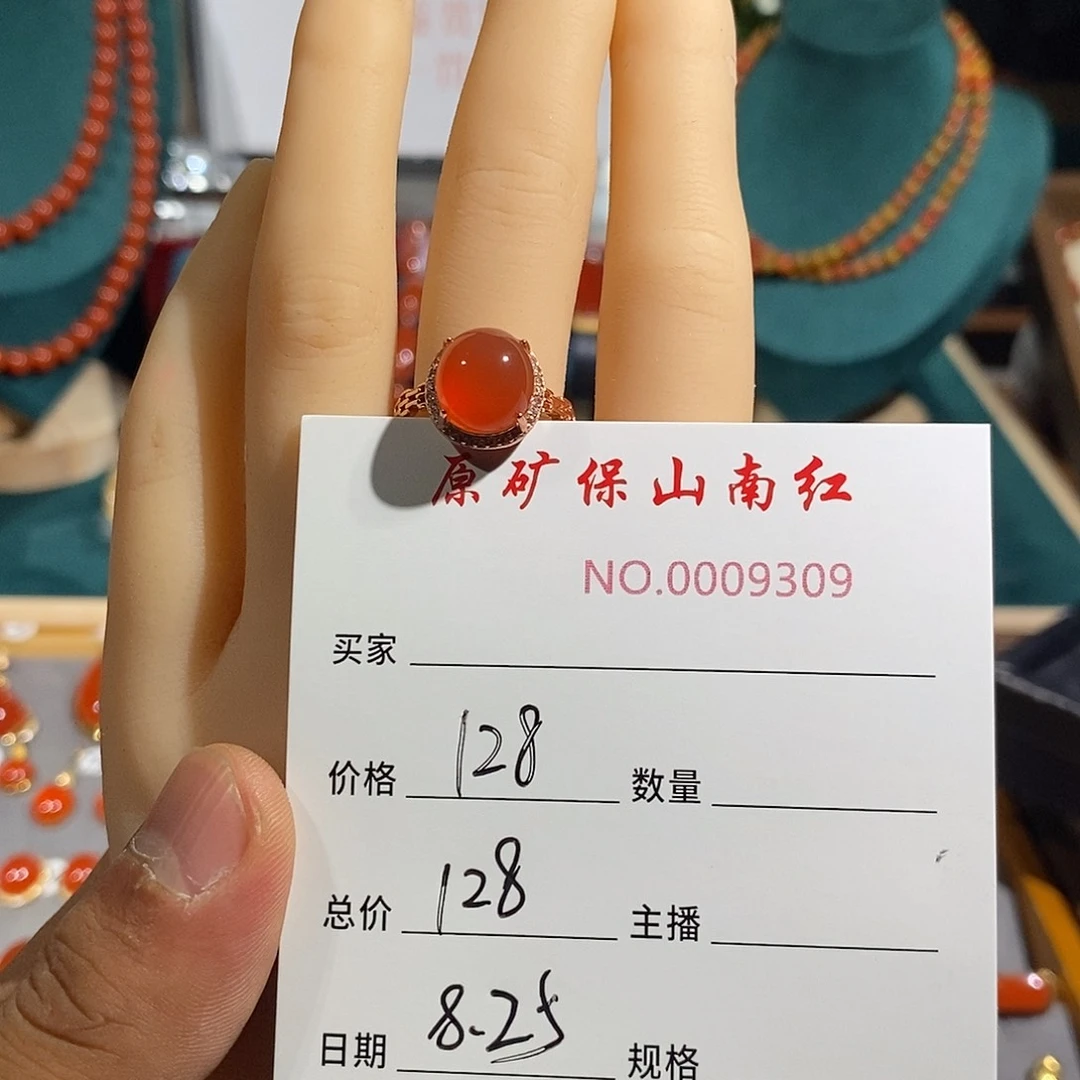 原矿保山南红
NO.0009309
买家
价格 128 数量
总价 128 主播
日期 8.25 规格